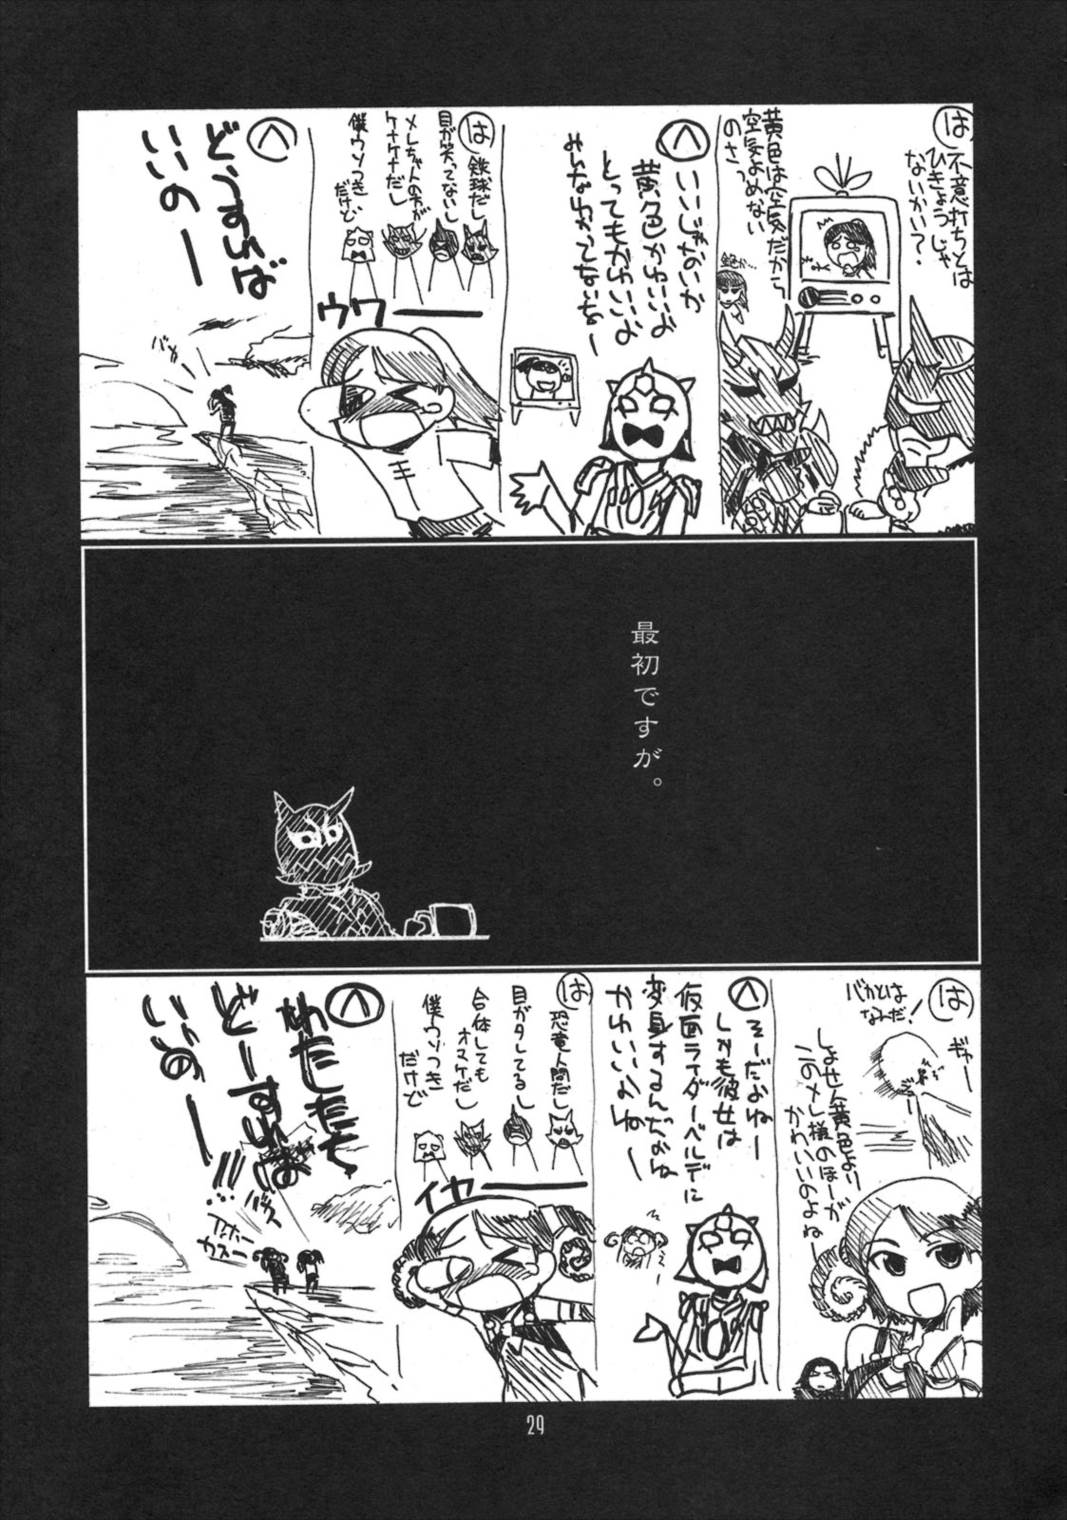 は
不意打ちとは
ひきょうじゃ
ないかい？
黄色は空気だから
空気よめない
のさっ
金色か…
へ
いいじゃないか
黄色かわいいよ
とってもかわいいよ
みんなわかってないなー
は
鉄球だし
目が笑ってないし
メレちゃんの方が
ケナゲだし
僕ウソつき
だけど
ウワーーー
へ
どうすれば
いいのー
バカー
最初ですが。
は
バカとは
なんだ！
ギャー
しょせん黄色より
このメレ様のほーが
かわいいのよねー
へ
そーだよねー
しかも彼女は
仮面ライダーベルデに
変身するんだよね
かわいいよねー
は
恐竜人間だし
目がタレてるし
合体しても
オマケだし
僕ウソつき
だけど
イヤーーー
へ
わたしたち
どーすれば
いいのー
!!!
アホー
カスー
29